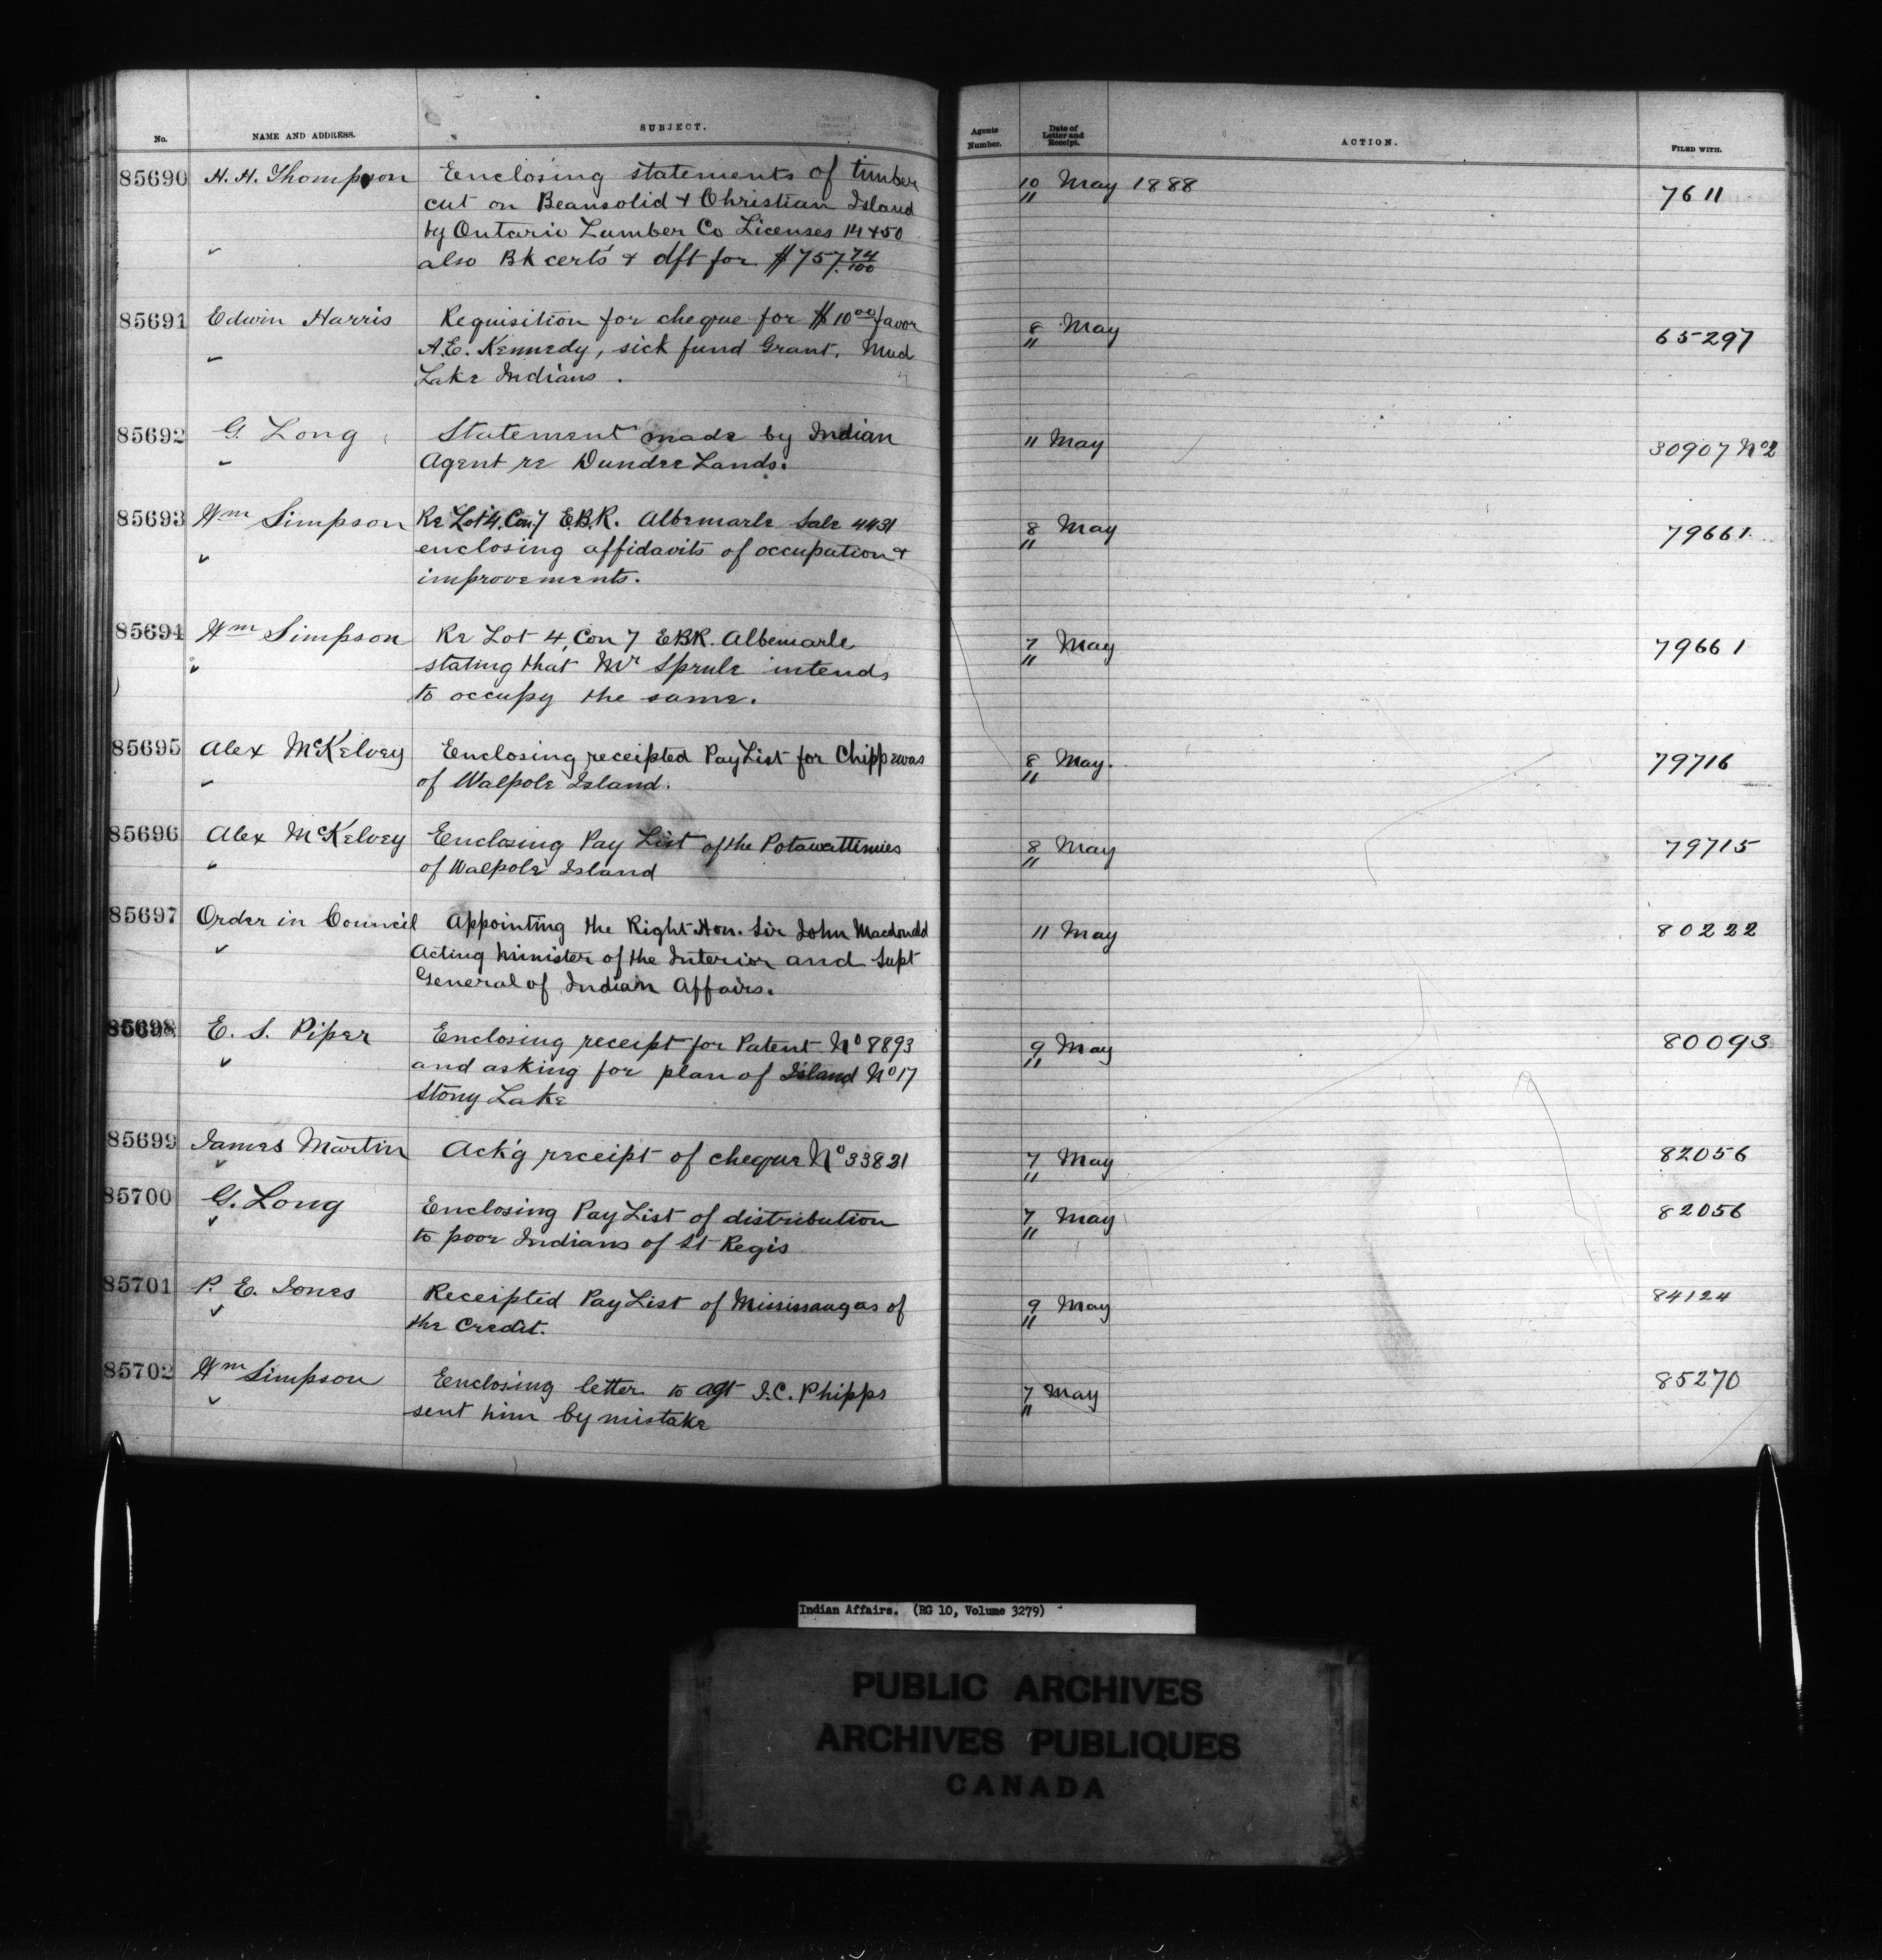 No. NAME AND ADDRESS. SUBJECT. Agents Number. Date of Letter and Receipt. ACTION. FILED WITH.
85690 H. H. Thompson Enclosing statements of timber 10/11 May 1888 7611
cut on Beausolid & Christian Island
by Ontario Lumber Co Licenses 14 & 50
also Bk certs & dft for $757.74/100
85691 Edwin Harris Requisition for cheque for $10 00 favor 8/11 May 65297
A.E. Kennedy, sick fund Grant. Mud
Lake Indians.
85692 G. Long Statement made by Indian 11 May 30907 No 2
Agent re Dundee Lands.
85693 Wm Simpson Re Lot 4, Con. 7 E.B.R. Albemarle Sale 4431 8/11 May 79661
enclosing affidavits of occupation &
improvements.
85694 Wm Simpson Re Lot 4, Con 7 EBR. Albemarle 7/11 May 79661
stating that Mr Sprule intends
to occupy the same.
85695 Alex McKelvey Enclosing receipted Pay List for Chippewas 8/11 May. 79716
of Walpole Island.
85696 Alex McKelvey Enclosing Pay List of the Potawattimies 8/11 May 79715
of Walpole Island
85697 Order in Council Appointing the Right Hon. Sir John Macdonald 11 May 80222
Acting Minister of the Interior and Supt
General of Indian Affairs.
85698 E. S. Piper Enclosing receipt for Patent No 8893 9/11 May 80093
and asking for plan of Island No 17
Stony Lake
85699 James Martin Ack'g receipt of cheque No 33821 7/11 May 82056
85700 G. Long Enclosing Pay List of distribution 7/11 May 82056
to poor Indians of St Regis
85701 P. E. Jones Receipted Pay List of Mississaugas of 9/11 May 84124
the Credit.
85702 Wm Simpson Enclosing letter to agt J.C. Phipps 7/11 May 85270
sent him by mistake
Indian Affairs. (RG 10, Volume 3279)
PUBLIC ARCHIVES
ARCHIVES PUBLIQUES
CANADA